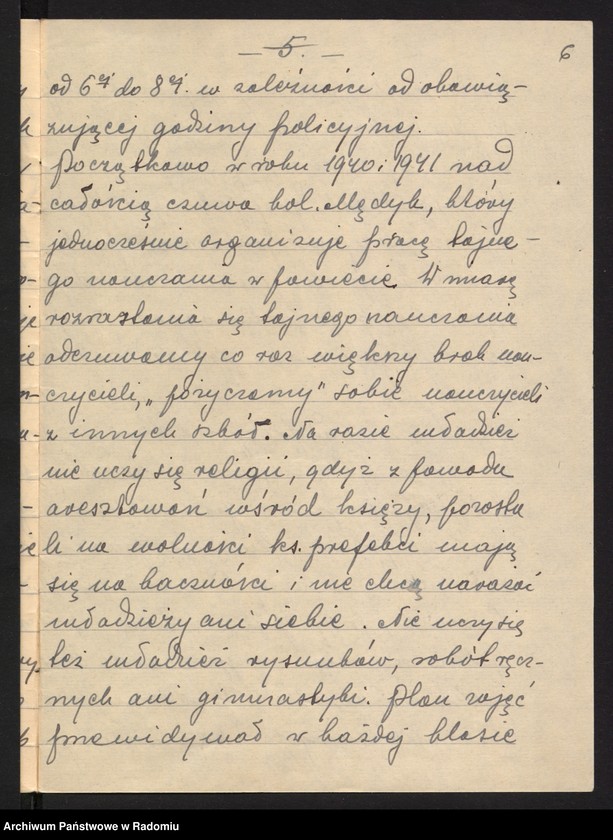 - 5. -
6
od 6ej do 8ej. w zależności od obowią-
zującej godziny policyjnej.
Początkowo w roku 1940 i 1941 nad
całością czuwa kol. Mędyk, który
jednocześnie organizuje pracę tajne-
go nauczania w powiecie. W miarę
rozrastania się tajnego nauczania
odczuwamy co raz większy brak nau-
czycieli, „pożyczamy" sobie nauczycieli
z innych szkół. Na razie młodzież
nie uczy się religii, gdyż z powodu
aresztowań wśród księży, pozosta
li na wolności ks. prefekci mają
się na baczności i nie chcą narażać
młodzieży ani siebie. Nie uczy się
też młodzież rysunków, robót ręcz-
nych ani gimnastyki. Plan zajęć
przewidywał w każdej klasie
Archiwum Państwowe w Radomiu